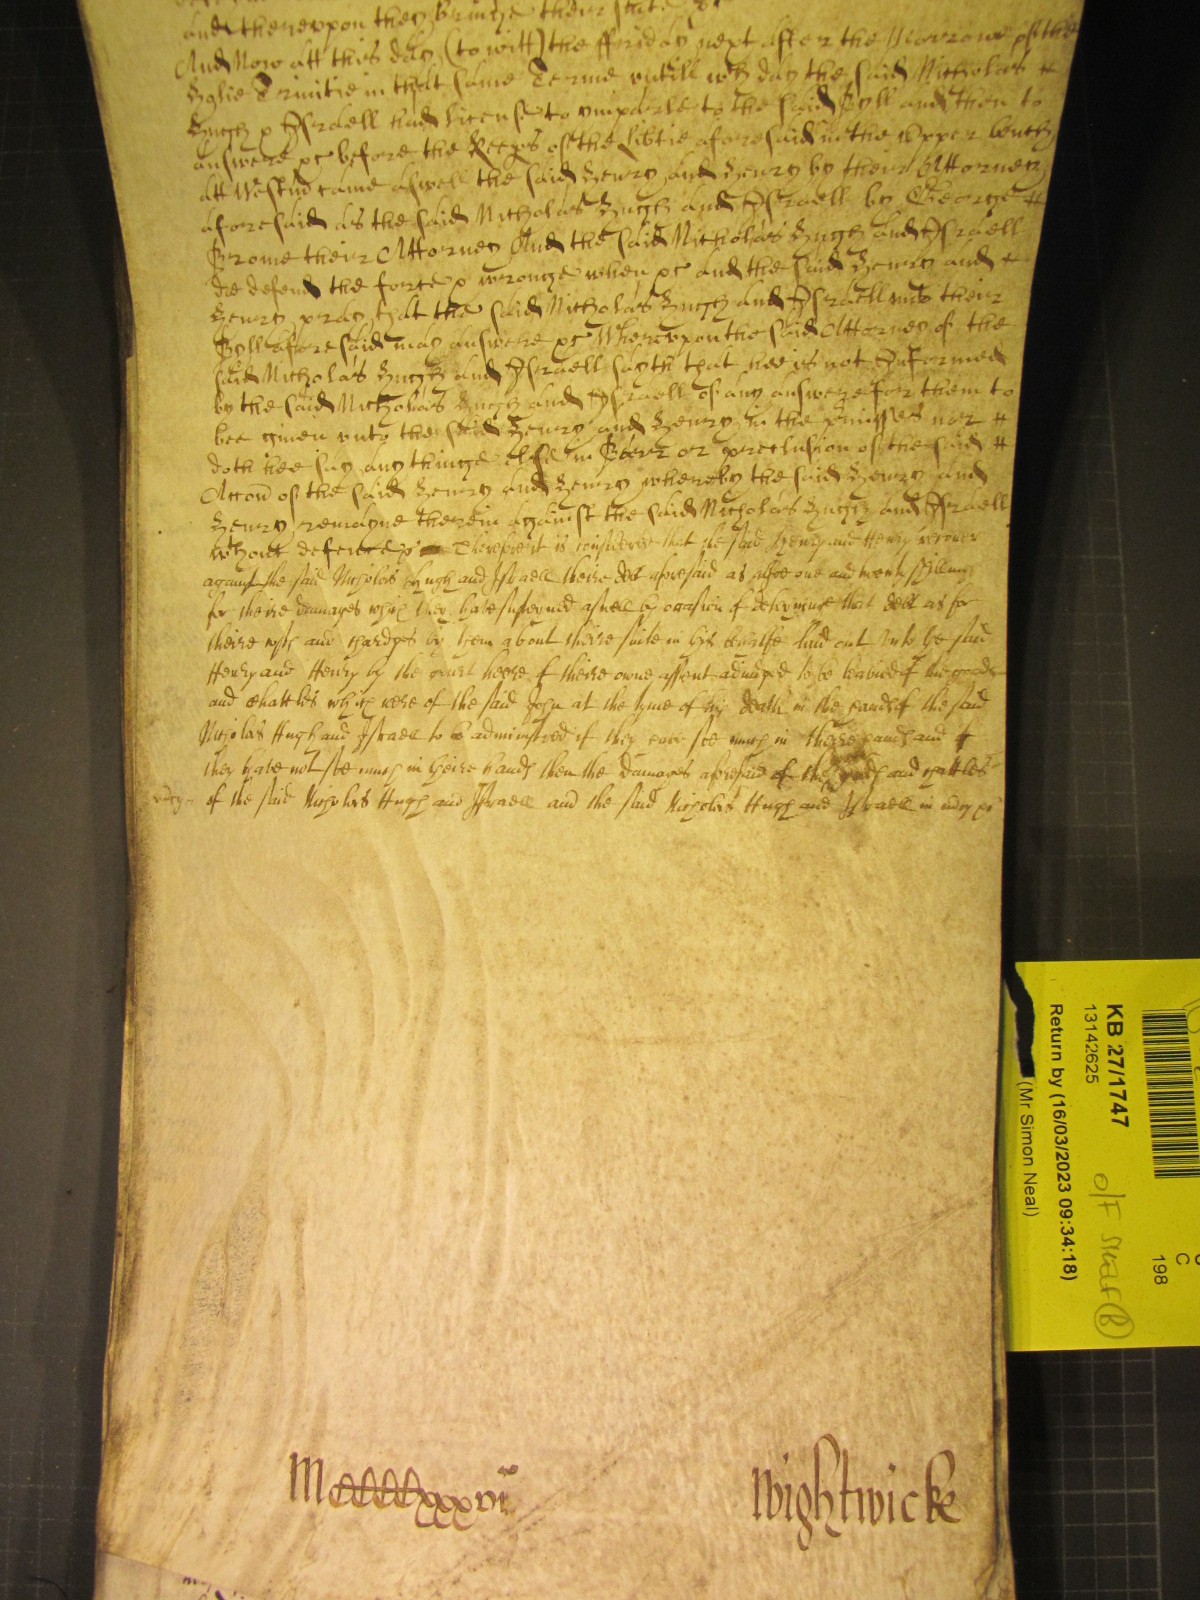 and thereupon they bringe their suite &c
And Now att this day (to witt) the ffriday next after the Morrowe of the
Holie Trinitie in that same Terme untill wch day the said Nicholas
Hugh & Israell had license to imparle to the said Byll and then to
answere &c before the Keeps of the Libtie aforesaid in the Upper bench
att Westm came aswell the said Henry and Henry by their Attorney
aforesaid as the said Nicholas Hugh and Israell by George
Brome their Attorney And the said Nicholas Hugh and Israell
die defend the force & wronge when &c and the said Henry and
Henry pray that the said Nicholas Hugh and Israell unto their
Byll aforesaid may answere &c Whereupon the said Attorney of the
said Nicholas Hugh and Israell sayth that hee is not Informed
by the said Nicholas Hugh and Israell of any answere for them to
bee given unto the said Henry and Henry in the pmisses nor
doth hee say any thinge else in Barr or preclusion of the said
Accon of the said Henry and Henry whereby the said Henry and
Henry remayne therein against the said Nicholas Hugh and Israell
wthout defence &c Therefore it is considered that the said Henry and Henry recover
against the said Nicholas Hugh and Israell theire debt aforesaid as alsoe one and twenty shillings
for theire damages which they have susteyned aswell by occasion of deteyning that debt as for
theire costs and chardges by them about theire suite in this behalfe laid out unto the said
Henry and Henry by the court heere of theire owne assent adiudged to be leavied of the goods
and chattles which were of the said John at the tyme of his death in the hands of the said
Nicholas Hugh and Israell to be administred if they have soe much in theire hands and if
they have not soe much in theire hands then the damages aforesaid of the goods and chattles
mcy of the said Nicholas Hugh and Israell and the said Nicholas Hugh and Israell in mcy &c
Mccccxxxvi
Wightwicke
KB 27/1747
13142625
Return by (16/03/2023 09:34:18)
(Mr Simon Neal)
C
198